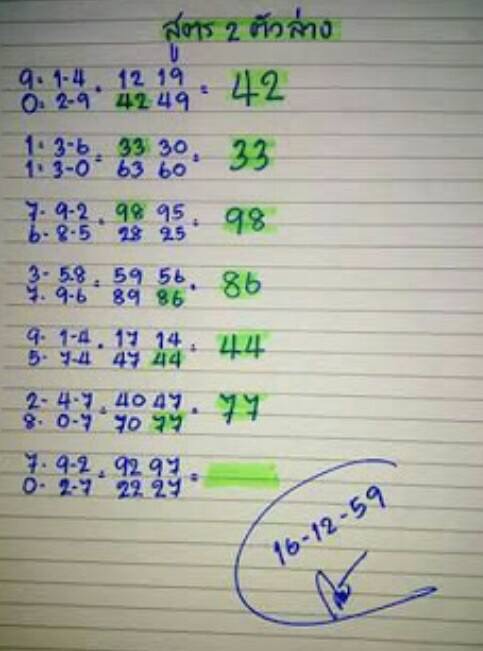 สูตร 2 ตัวล่าง
9 = 1-4 = 12 19 = 42
0 = 2-9 42 49
1 = 3-6 = 33 30 = 33
1 = 3-0 63 60
7 - 9-2 = 98 95 = 98
6 - 8-5 28 25
3 - 5-8 = 59 56 = 86
7 - 9-6 89 86
9 - 1-4 = 17 14 = 44
5 - 7-4 47 44
2 - 4-7 = 40 47 = 77
8 - 0-7 70 77
7 - 9-2 = 92 97 =
0 - 2-7 22 27
16-12-59